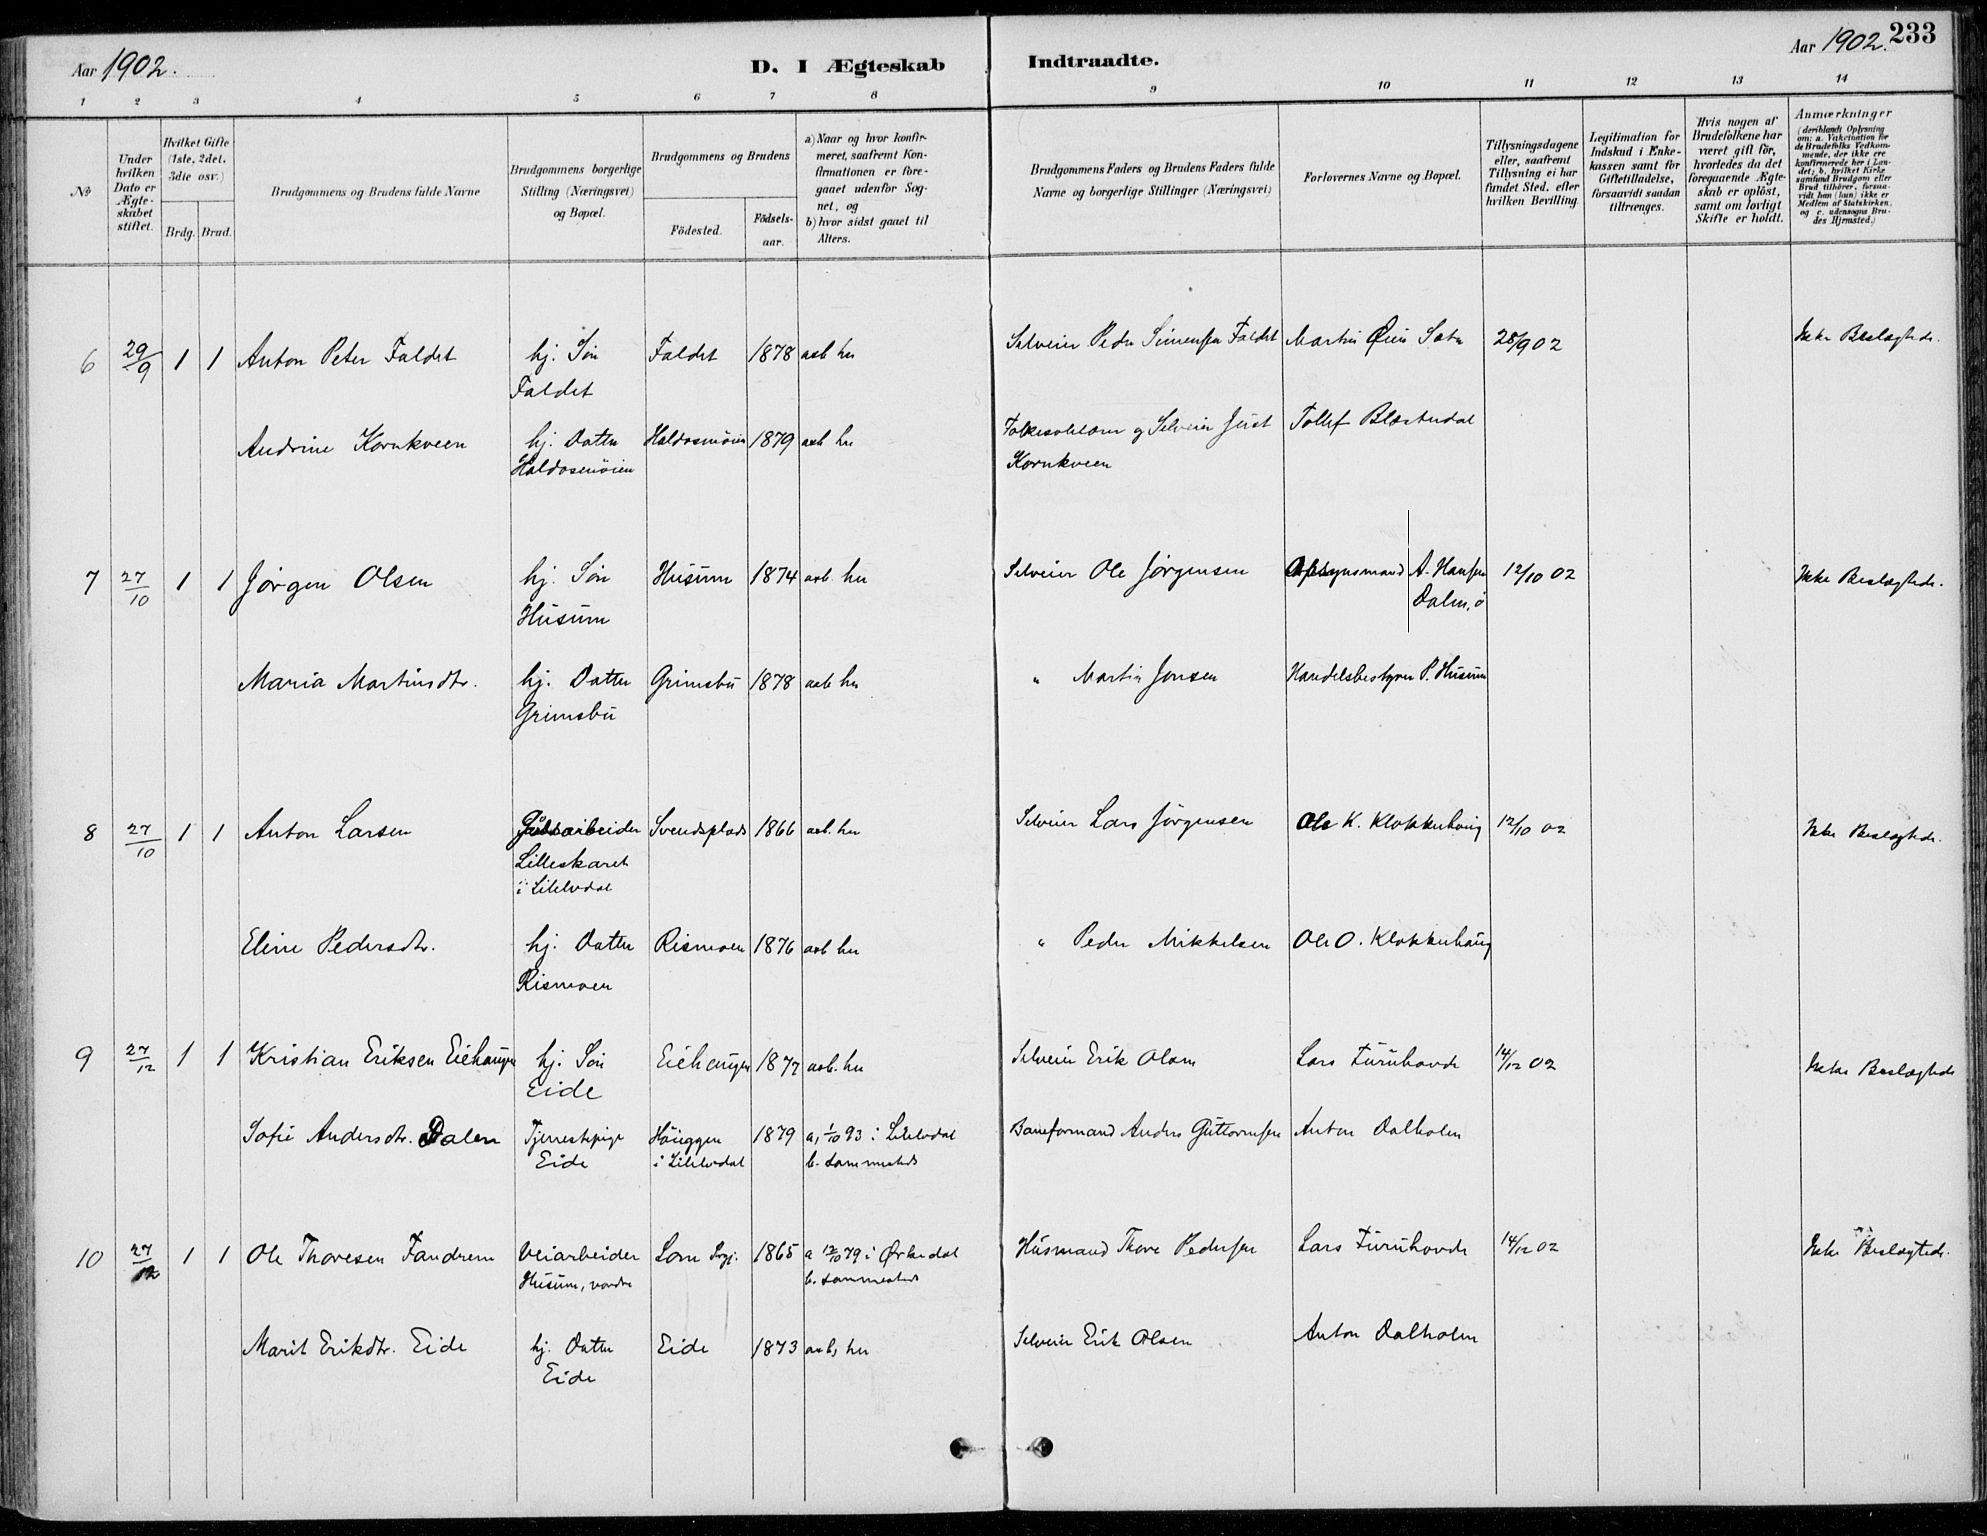 Aar 1902.
D. I Ægteskab Indtraadte.
Aar 1902. 233
1 2 3 4 5 6 7 8 9 10 11 12 13 14
№
Under hvilken Dato er Ægteskabet stiftet.
Hvilket Gifte (1ste, 2det, 3die osv.)
Brdg. Brud.
Brudgommens og Brudens fulde Navne
Brudgommens borgerlige Stilling (Næringsvei) og Bopæl.
Brudgommens og Brudens
Födested.
Födselsaar.
a) Naar og hvor konfirmeret, saafremt Konfirmationen er foregaaet udenfor Sognet, og
b) hvor sidst gaaet til Alters.
Brudgommens Faders og Brudens Faders fulde Navne og borgerlige Stillinger (Næringsvei)
Forlovernes Navne og Bopæl.
Tillysningsdagene eller, saafremt Tillysning ei har fundet Sted, efter hvilken Bevilling.
Legitimation for Indskud i Enkekassen samt for Giftetilladelse, forsaavidt saadan tiltrænges.
Hvis nogen af Brudefolkene har været gift för, hvorledes da det foregaaende Ægteskab er oplöst, samt om lovligt Skifte er holdt.
Anmærkninger (deriblandt Oplysning om: a. Vakcination for de Brudefolks Vedkommende, der ikke ere konfirmerede her i Landet; b. hvilket Kirkesamfund Brudgom eller Brud tilhörer, forsaavidt han (hun) ikke er Medlem af Statskirken, og c. udensogns Brudes Hjemsted.)
6 29/9 1 1 Anton Peter Faldet hj. Søn Faldet 1878 aab her Selveier Peder Simensen Faldet Martin 28/9 02 Ikke Beslægtede.
Faldet
Andrine Kornkveen hj. Datter Haldosmöien 1879 aab her og Selveier Just Tollef Blæsterdal
Haldosmöien Kornkveen
7 27/10 1 1 Jørgen Olsen hj. Søn Husum 1874 aab. her Selveier Ole Jørgensen Opsynsmand A. Hansen 12/10 02 Ikke Beslægtede.
Husum Dalen, ö
Maria Martinsdtr. hj. Datter Grimsbu 1878 aab her " Martin Jonsen Handelsbestyrer P. Husum
Grimsbu
8 27/10 1 1 Anton Larsen Svendsplads 1866 aab. her Selveier Lars Jørgensen Ole K. Klokkerhaug 12/10 02 Ikke Beslægtede.
Lilleskaret
i Lilelvdal
Eline Pedersdtr. hj. Datter Rismoen 1876 aab her " Peder Mikkelsen Ole O. Klokkerhaug
Rismoen
9 27/12 1 1 Kristian Eriksen Eiehaugen hj. Søn Eiehaugen 1877 aab. her Selveier Erik Olsen Lars Furuhovde 14/12 02 Ikke Beslægtede
Eide
Sofie Andersdtr. Dalen Tjenestepige Häuggen 1879 a, 1/10 93 i Lilelvdal Baneformand Anders Guttormsen Anton Dalholen
Eide i Lilelvdal b. sammesteds
10 27/12 1 1 Ole Thoresen Fandrem Veiarbeider Lom Prgj. 1865 a 12/10 79 i Ørkedal Husmand Thore Pedersen Lars Furuhovde 14/12 02 Ikke Beslægtede.
Husum, nordre b. sammesteds
Marit Eriksdtr. Eide hj. Datter Eide 1873 aab, her Selveier Erik Olsen Anton Dalholen
Eide